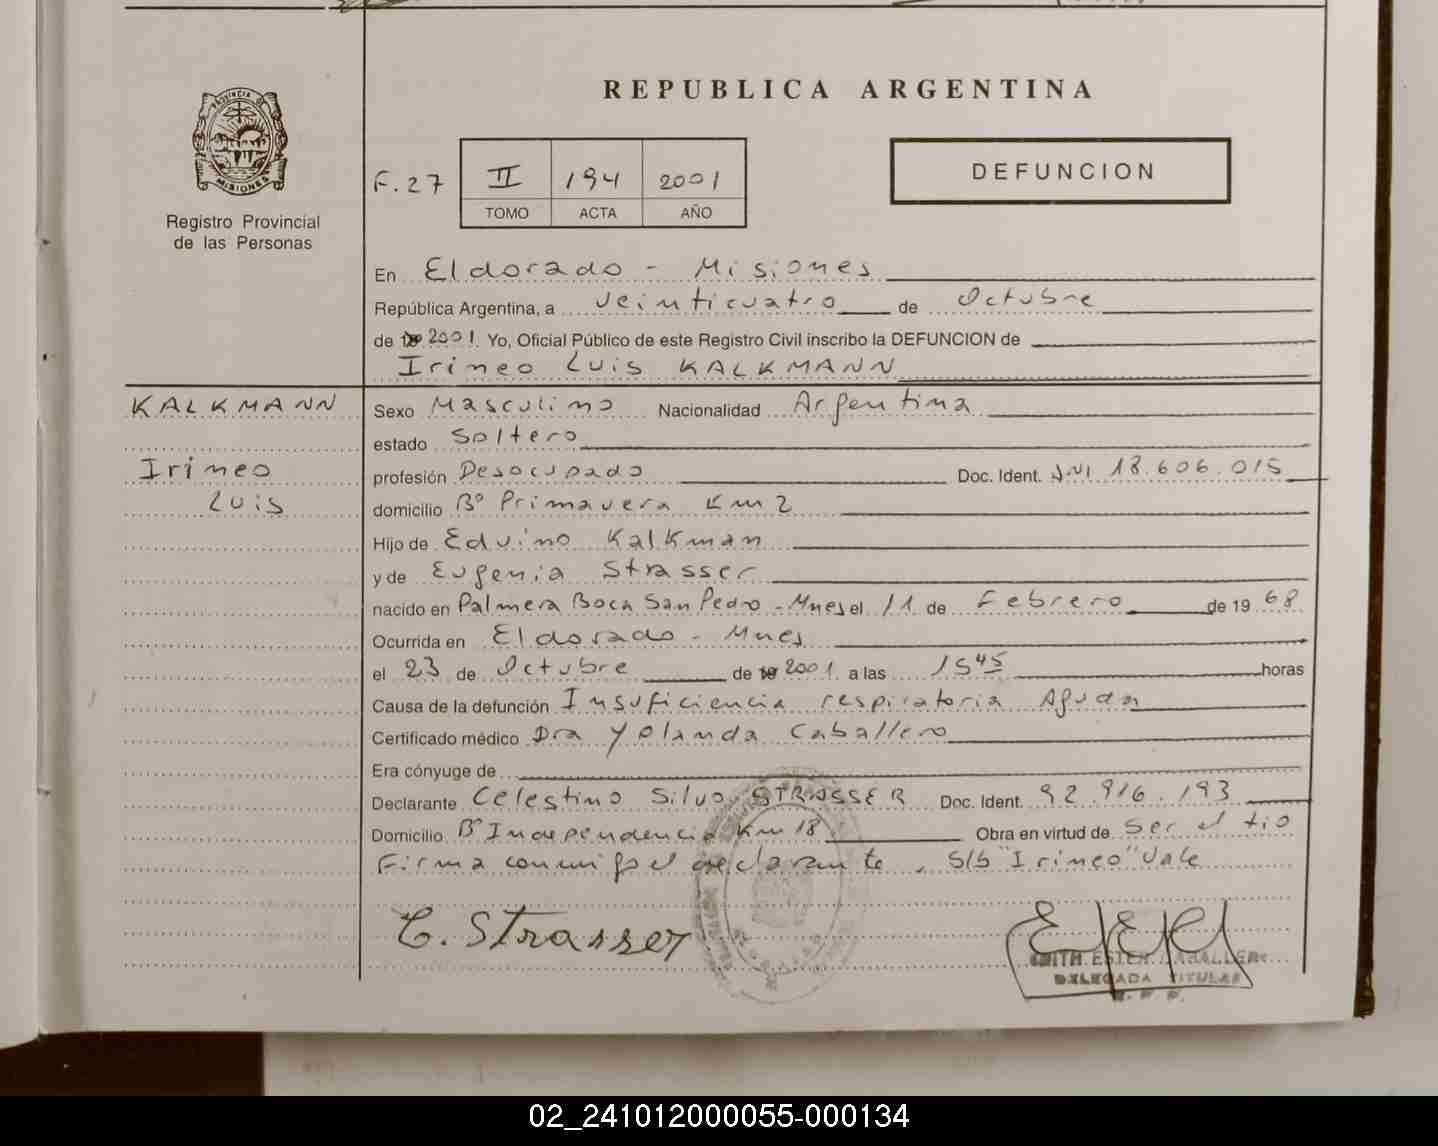 REPUBLICA ARGENTINA
PROVINCIA D
MISIONES
Registro Provincial
de las Personas
F. 27 II 194 2001
TOMO ACTA AÑO
DEFUNCION
En Eldorado - Misiones
República Argentina, a veinticuatro de Octubre
de 19 2001. Yo, Oficial Público de este Registro Civil inscribo la DEFUNCION de
Irineo Luis KALKMANN
KALKMANN
Irineo
Luis
Sexo Masculino Nacionalidad Argentina
estado Soltero
profesión Desocupado Doc. Ident. DNI 18.606.015
domicilio Bº Primavera Km 2
Hijo de Eduino Kalkman
y de Eugenia Strasser
nacido en Palmera Boca San Pedro - Mnes el 11 de Febrero de 19 68
Ocurrida en Eldorado - Mnes
el 23 de Octubre de 19 2001 a las 15 45 horas
Causa de la defunción Insuficiencia respiratoria Aguda
Certificado médico Dra Yolanda Caballero
Era cónyuge de
Declarante Celestino Silvo STRASSER Doc. Ident. 92.916.193
Domicilio Bº Independencia Km 18 Obra en virtud de Ser el tio
Firma conmigo el declarante, S/b "Irineo" Vale
C. Strasser
EDITH ESTER CABALLERO
DELEGADA TITULAR
R. P. P.
02_241012000055-000134